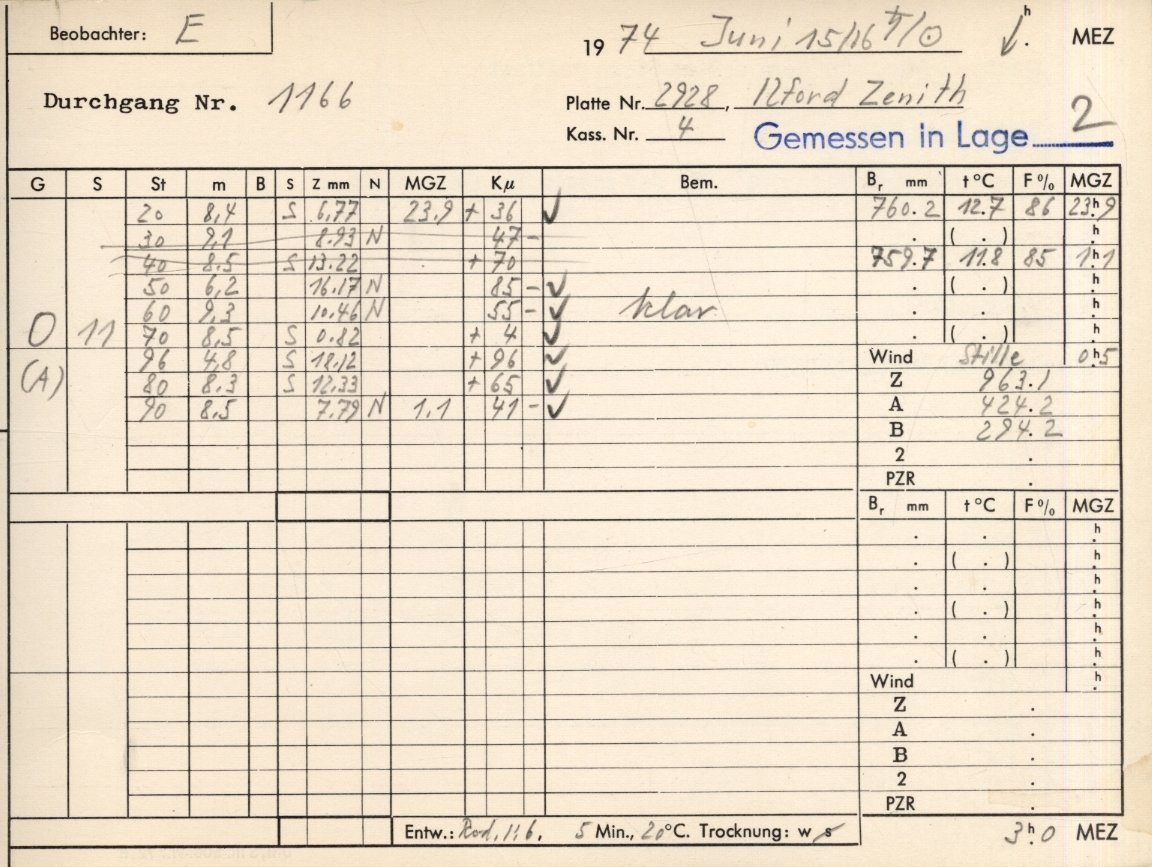 Beobachter: E
19 74 Juni 15/16 ♄/☉ h . MEZ
Durchgang Nr. 1166
Platte Nr. 2928, Ilford Zenith
Kass. Nr. 4
Gemessen in Lage 2
G S St m B S Z mm N MGZ Kμ Bem. Br mm t °C F % MGZ
20 8,4 S 6,77 23.9 + 36 ✓ 760.2 12.7 86 23h9
30 9,1 8.93 N 47 - . ( . ) h.
40 8.5 S 13.22 + 70 759.7 11.8 85 1h1
50 6,2 16.17 N 85 - ✓ . ( . ) h.
60 9,3 10.46 N 55 - ✓ klar . . h.
O 11 70 8,5 S 0.82 + 4 ✓ . ( . ) h.
96 4,8 S 18.12 + 96 ✓ Wind Stille 0h5
(A) 80 8.3 S 12.33 + 65 ✓ Z 963.1
90 8.5 7.79 N 1.1 41 - ✓ A 424.2
B 294.2
2 .
PZR .
Br mm t °C F % MGZ
. . h.
. ( . ) h.
. . h.
. ( . ) h.
. . h.
. ( . ) h.
Wind h.
Z .
A .
B .
2 .
PZR .
Entw.: Rod. 1:6, 5 Min., 20°C. Trocknung: w s
3h0 MEZ